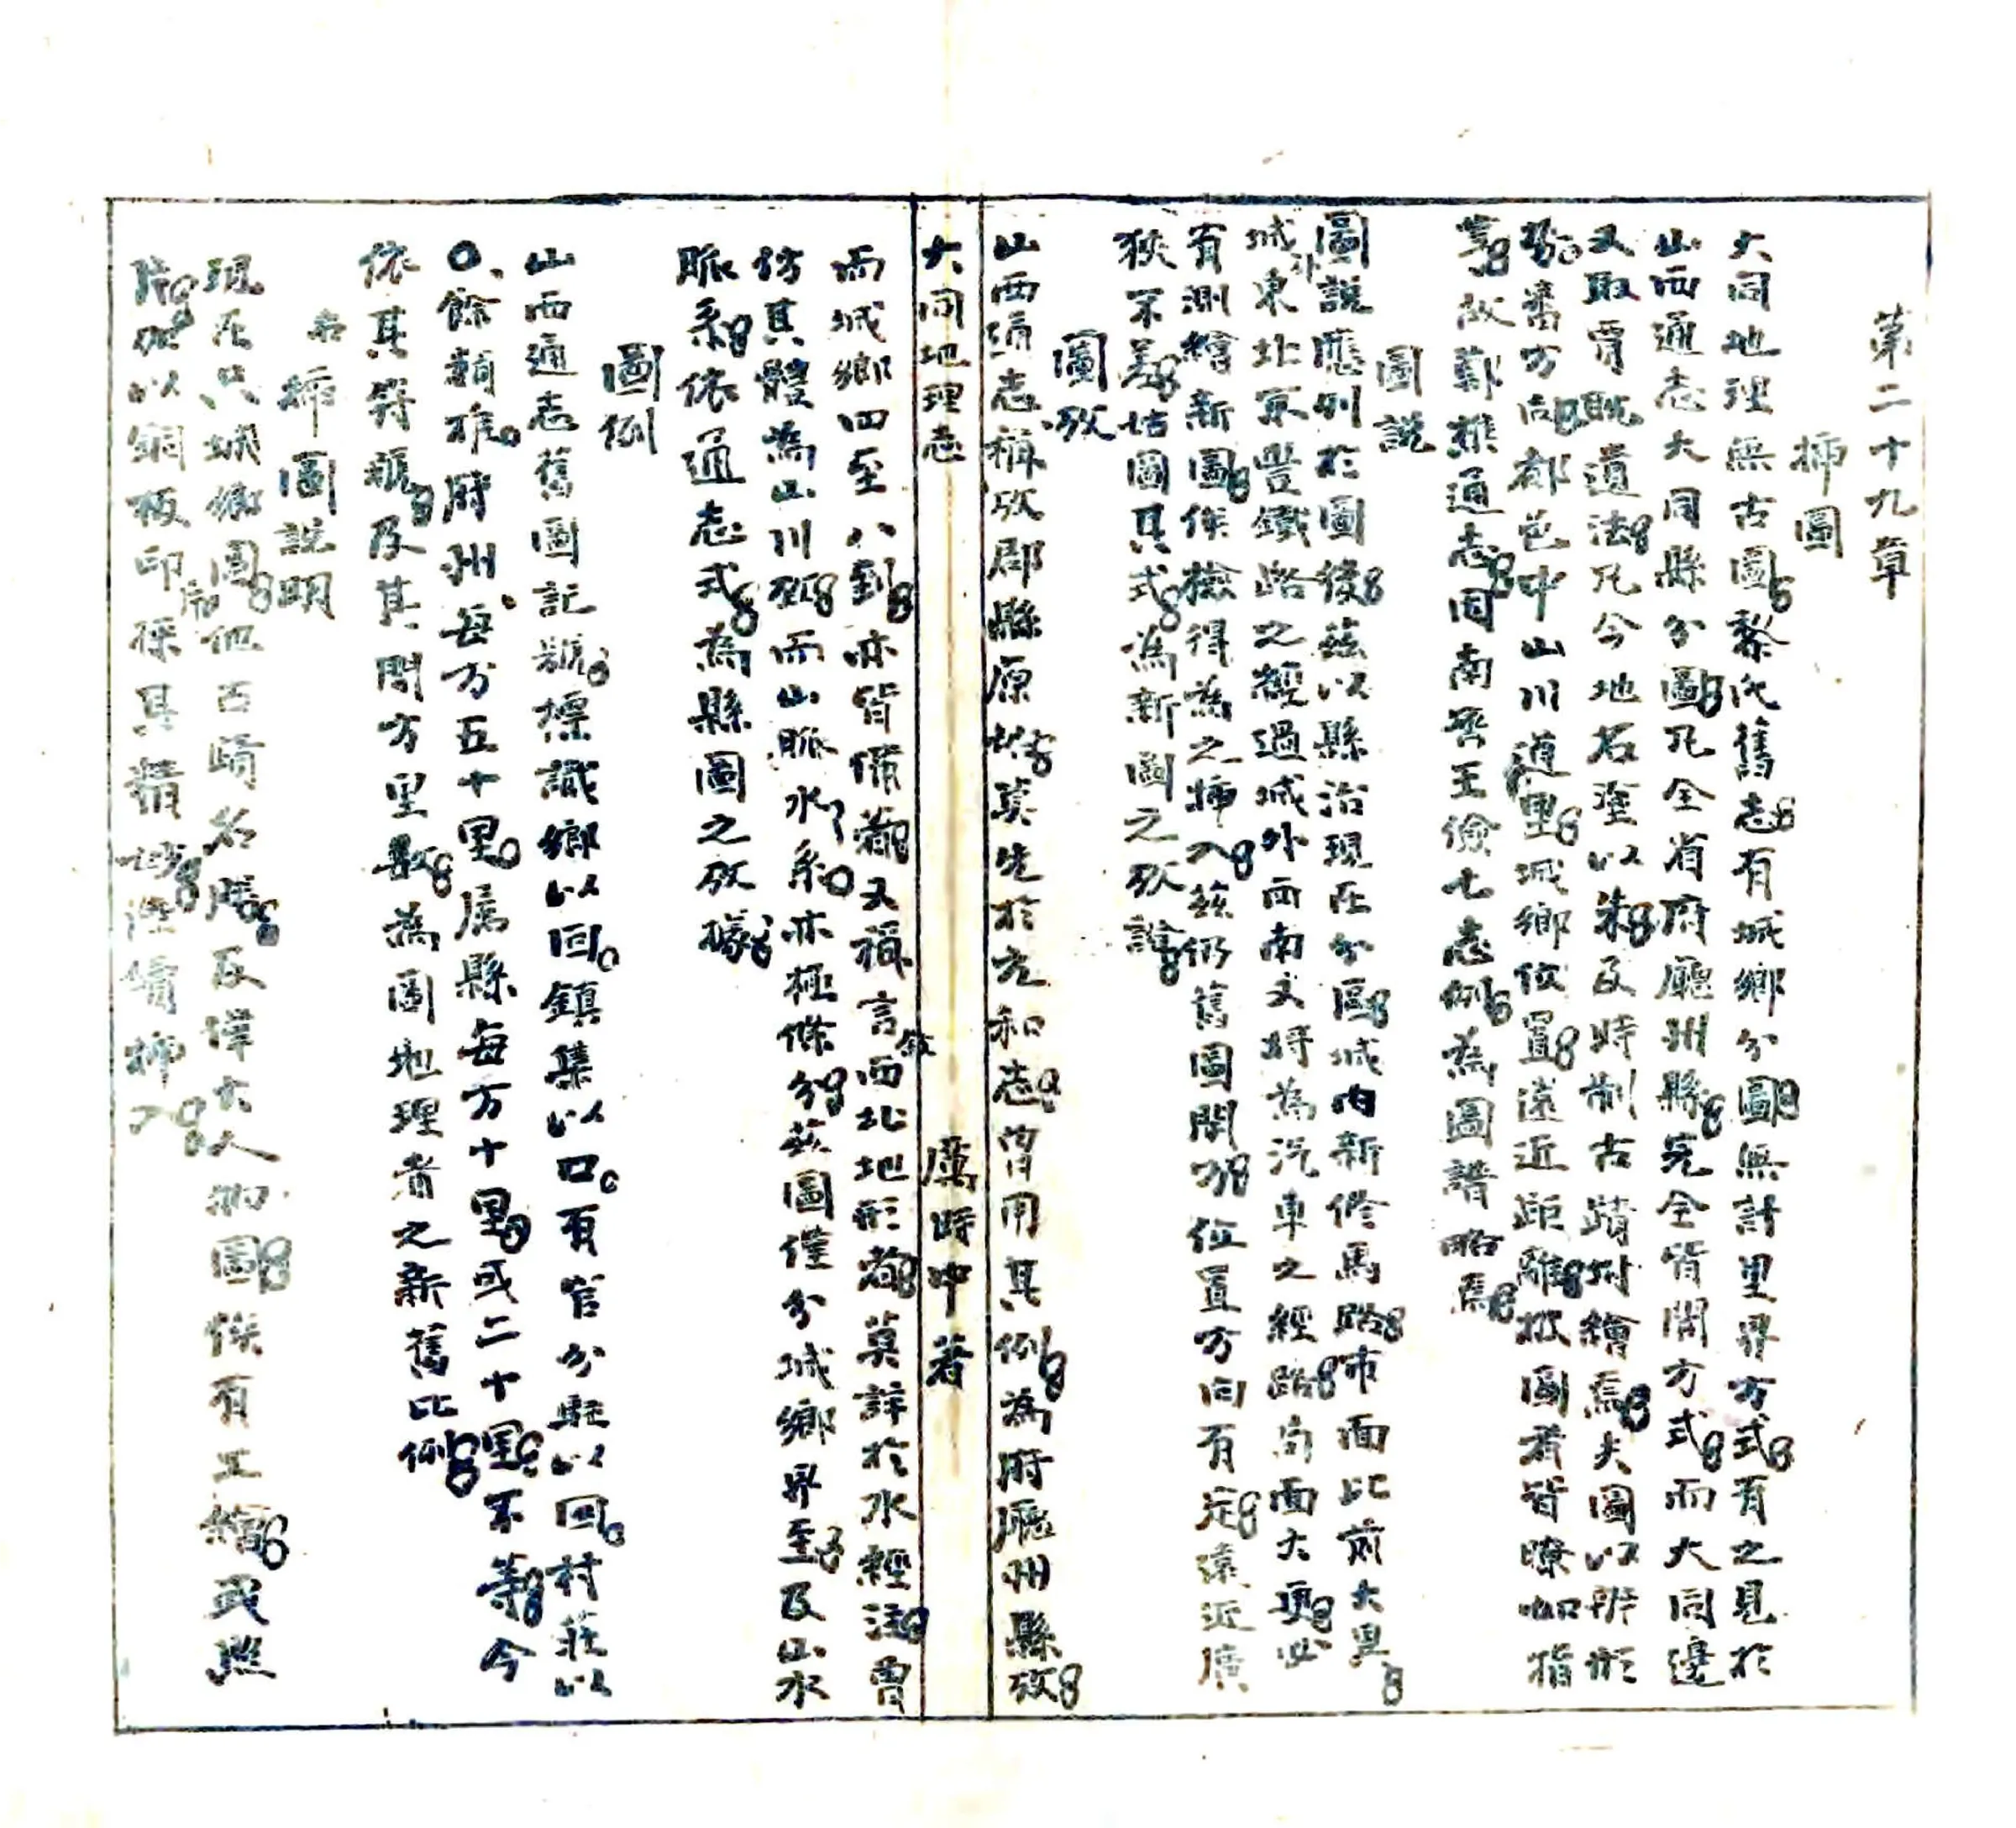 第二十九章
插圖
大同地理無古圖黎氏舊志有城鄉分圖無計里界方式有之見於
山西通志大同縣分圖凡全省府廳州縣完全皆開方式而大同邊
又取胥既遺法凡今地名塗以朱及時制古蹟附繪焉大圖以辨形
勢審方向郡邑中山川道里城鄉位置遠近距離披圖者皆瞭如指
掌故鄭樵通志因南齊王儉七志例為圖譜略焉
圖說
圖說應列於圖後茲以縣治現在分區城內新修馬路市面比前大異
城外東北京豐鐵路之經過城外西南又將為汽車之經路局面大更必
有測繪新圖俟檢得為之插入茲仍舊圖開方位置方向有定遠近廣
狹不差姑圖其式為新圖之攷證
圖攷
山西通志稱攷郡縣原始莫先於元和志曾用其例為府廳州縣攷
大同地理志 厲時中著
而城鄉四至八到亦皆備載又稱言敘西北地形者莫詳於水經注曾
仿其體為山川攷而山脈水系亦極條分茲圖僅分城鄉界至及山水
脈系依通志式為縣圖之攷據
圖例
山西通志舊圖記號標識鄉以回鎮集以口有官分駐以回村莊以
〇餘類推府州每方五十里屬縣每方十里或二十里不等今
依其符號及其開方里數為圖地理者之新舊比例
插圖說明
現在只城鄉圖他如古蹟名勝及偉大人物圖俟有工繪或照
片後以銅板印刷採其精妙陸續插入